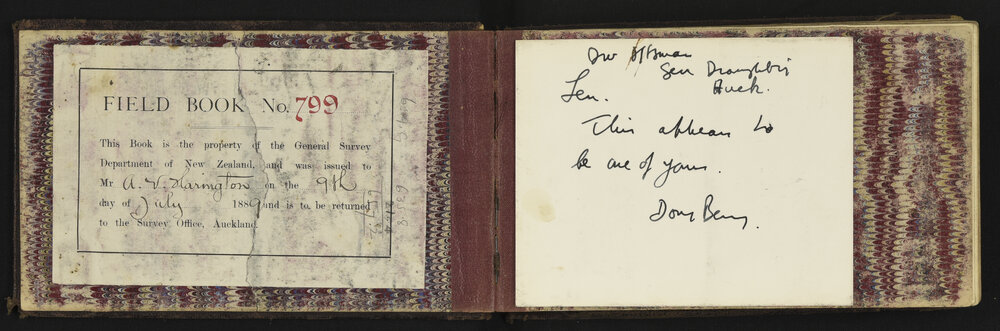 FIELD BOOK No. 799
This Book is the property of the General Survey
Department of New Zealand, and was issued to
Mr A. V. Harington on the 9th
day of July 1889 and is to be returned
to the Survey Office, Auckland.
Sen Draughtsn
Len. Auck.
This appears to
be one of yours.
Doug